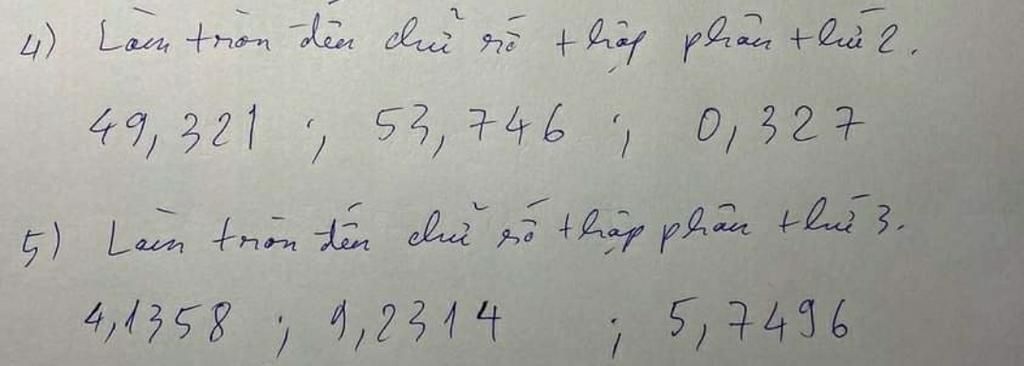 4) Làm tròn đến chữ số thập phân thứ 2.
49,321 ; 53,746 ; 0,327
5) Làm tròn đến chữ số thập phân thứ 3.
4,1358 ; 9,2314 ; 5,7496